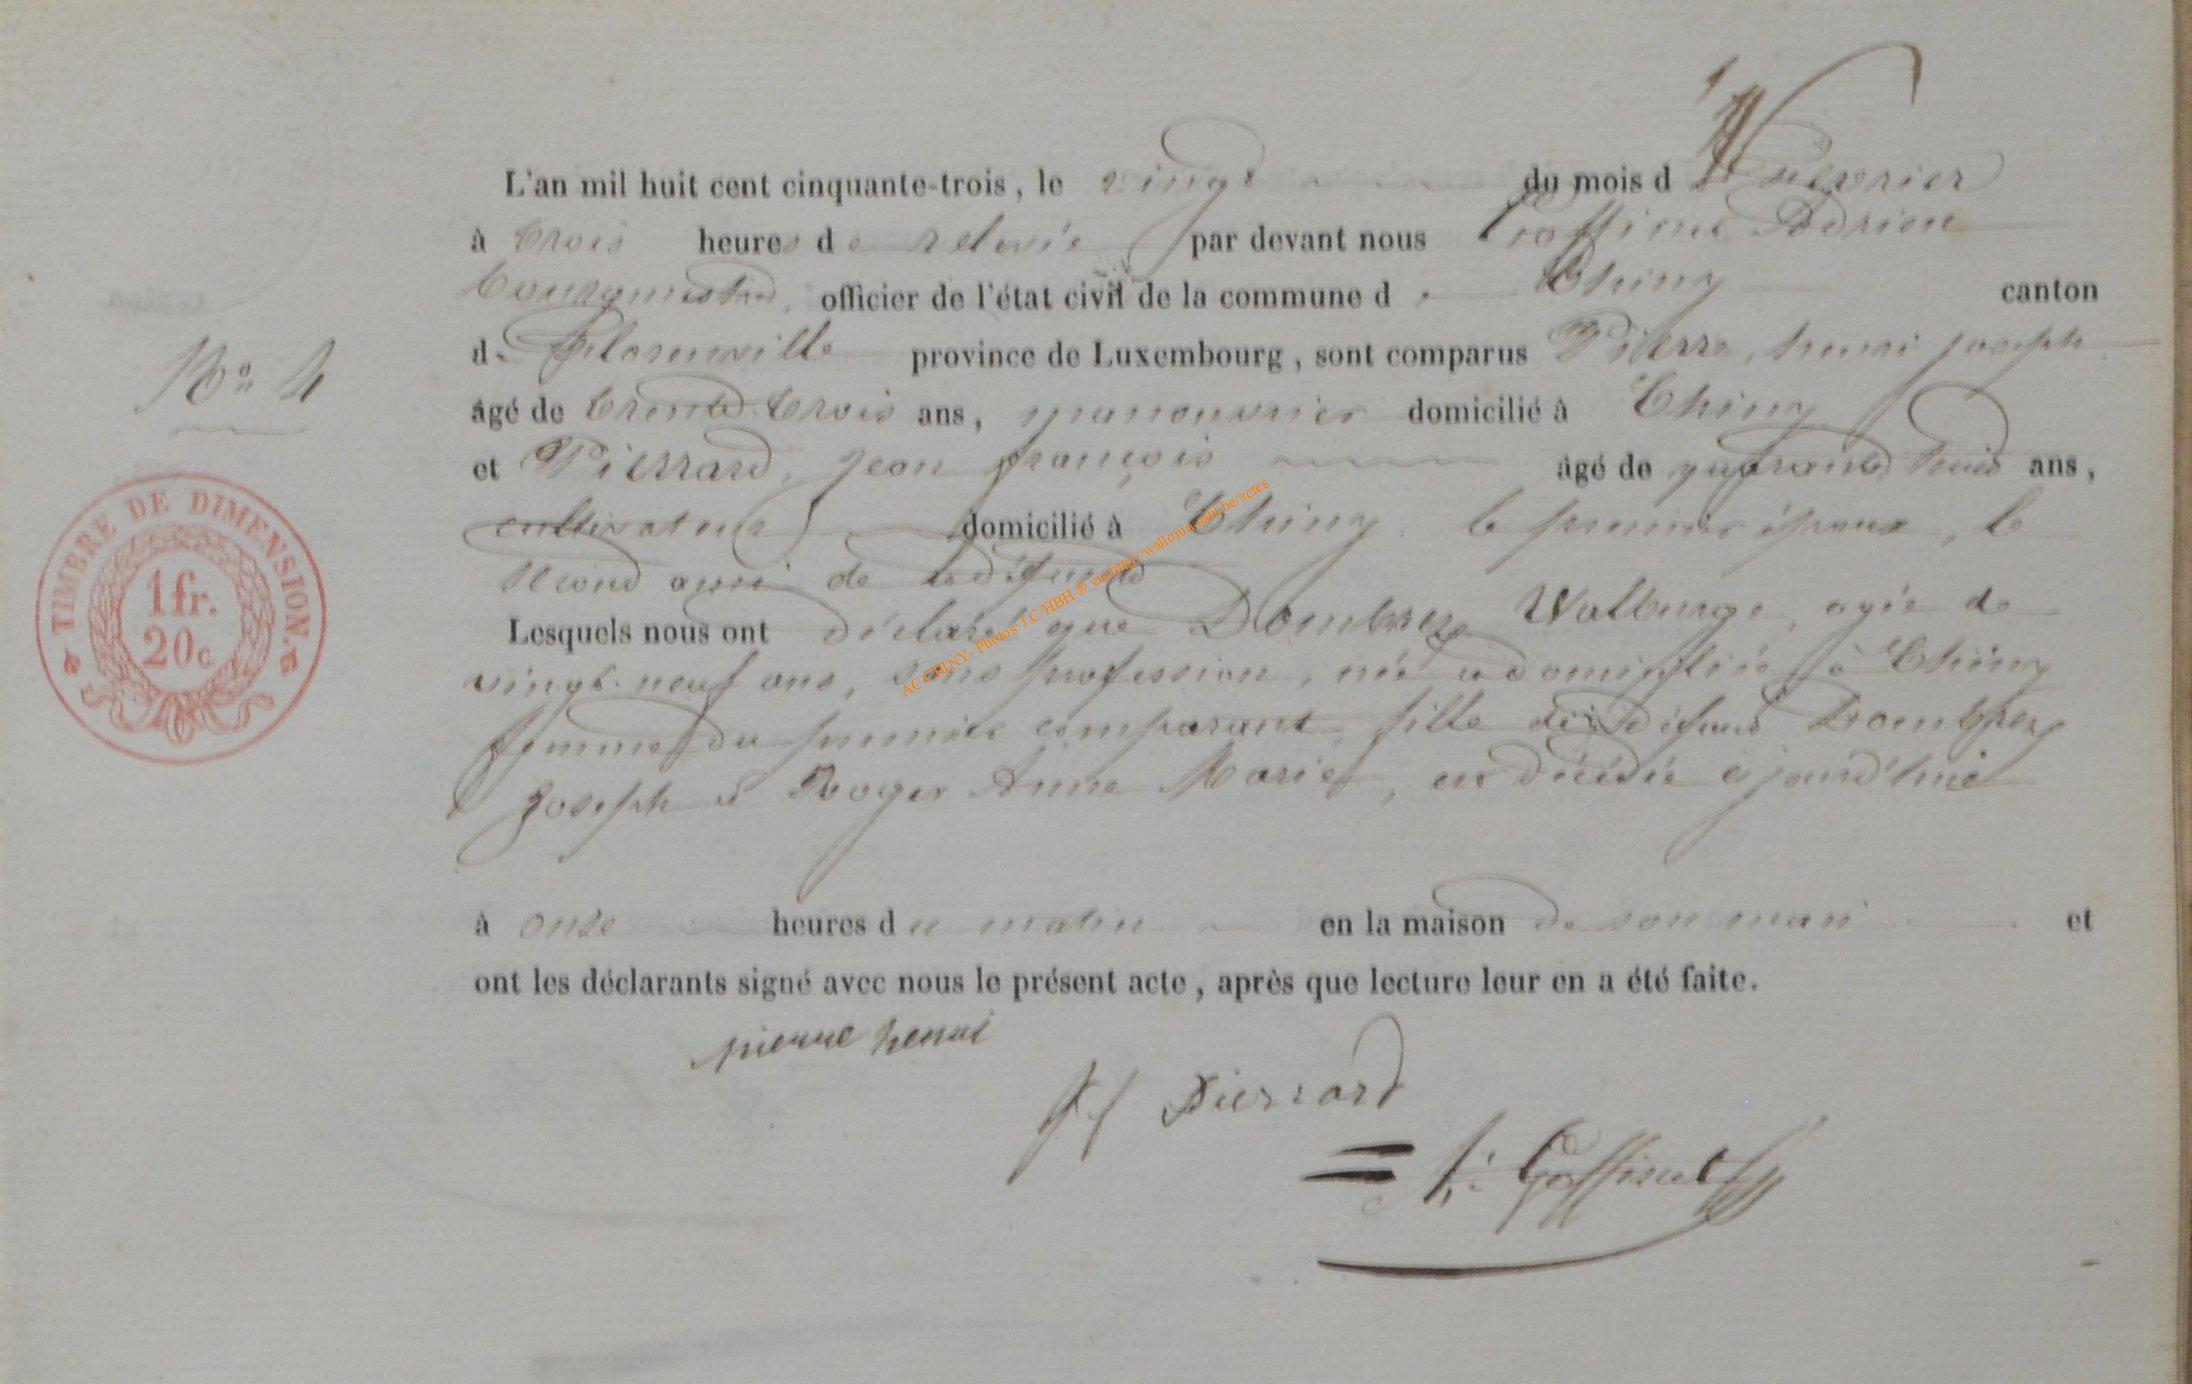 L'an mil huit cent cinquante-trois, le vingt du mois de fevrier
à trois heures de relevée par devant nous Goffinet Adrien
bourgmestre, officier de l'état civil de la commune de Chiny canton
de Florenville province de Luxembourg, sont comparus Pierre, henri joseph
No 4
âgé de trente trois ans, manouvrier domicilié à Chiny
et Pierrard, jean françois âgé de quarante huit ans,
cultivateur domicilié à Chiny le premier époux, le
second ami de la défunte
Lesquels nous ont déclaré que Dombrez Walburge, agée de
vingt-neuf ans, sans profession, née et domiciliée à Chiny
femme du premier comparant, fille de défunt Dombrez
Joseph et Roger Anne Marie, est décédée ejourd'hui
à onze heures du matin en la maison de son mari et
ont les déclarants signé avec nous le présent acte, après que lecture leur en a été faite.
pierre henri
Jf Pierrard
Goffinet
TIMBRE DE DIMENSION.
1 fr.
20 c
AC CHINY - Photos T.C/HBH ® via http://wallonia-asbl.be/actes